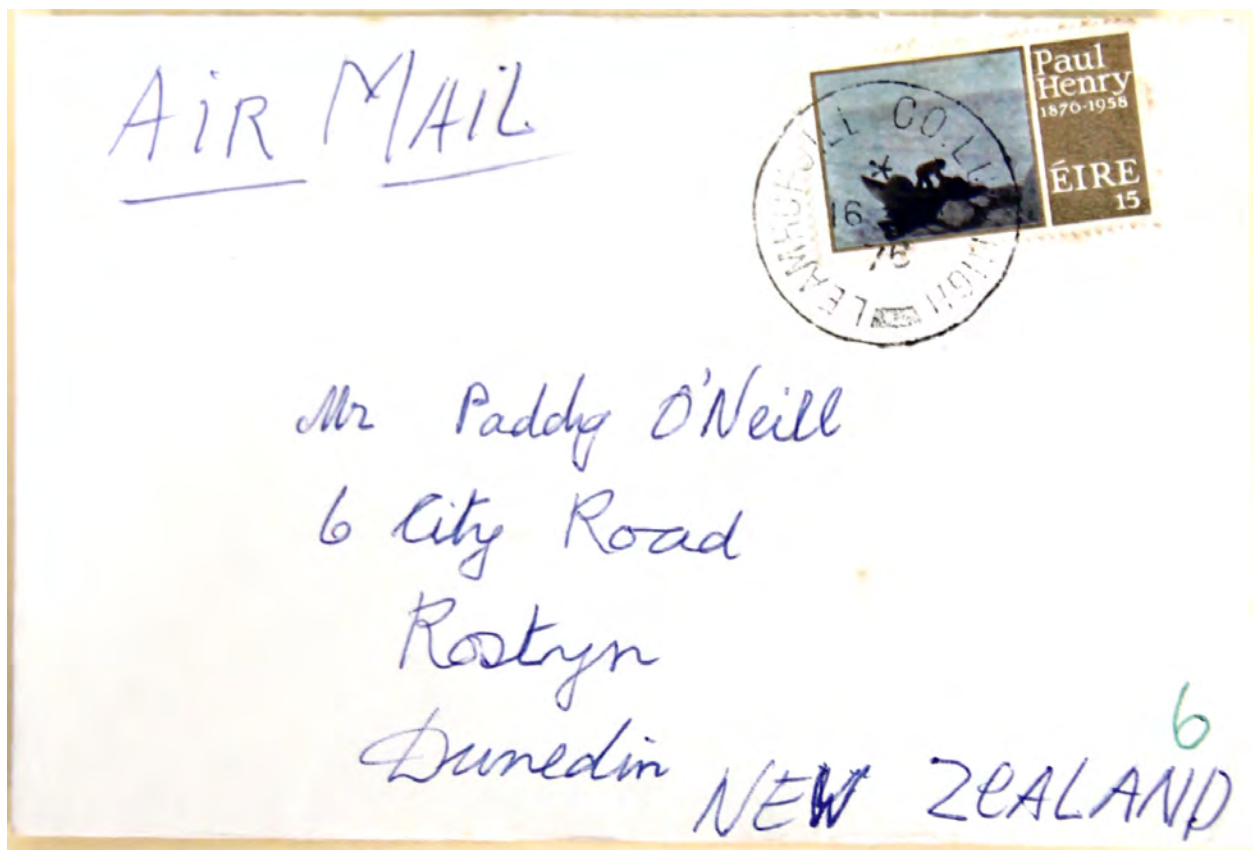 AiR MAiL
Paul
Henry
1876-1958
ÉIRE
15
CO.
16
76
Mr Paddy O'Neill
6 City Road
Rostyn
Dunedin
NEW ZeALAND
6